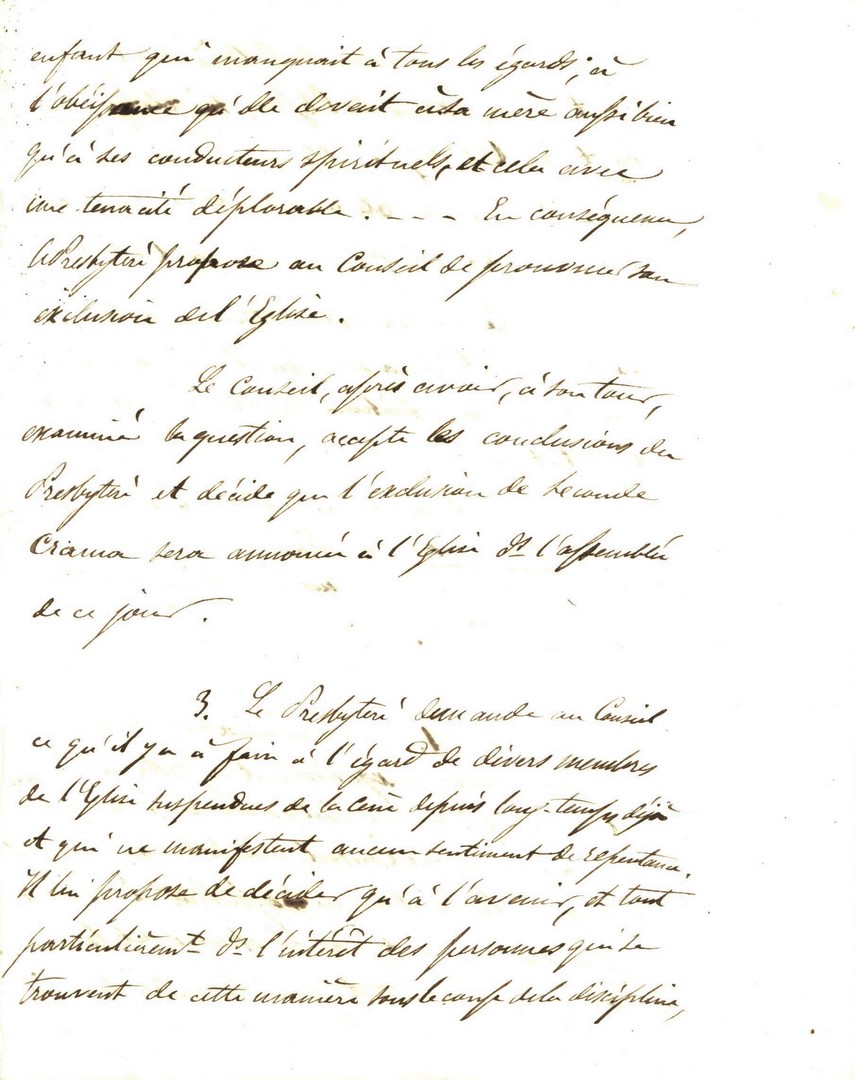 enfant qui manquait à tous les égards, à
l'obéissance qu'elle devait à sa mère aussi bien
qu'à ses conducteurs spirituels, et cela avec
une tenacité déplorable. - - - En conséquence,
le Presbytère propose au Conseil de prononcer son
exclusion de l'Eglise.
Le Conseil, après avoir, à son tour,
examiné la question, accepte les conclusions du
Presbytère et décide que l'exclusion de Seconde
Criama sera annoncée à l'Eglise ds l'assemblée
de ce jour.
3. Le Presbytère demande au Conseil
ce qu'il y a à faire à l'égard de divers membres
de l'Eglise suspendues de la cène depuis long-temps déjà
et qui ne manifestent aucun sentiment de repentance.
Il lui propose de décider qu'à l'avenir, et tout
particulièremt ds l'intérêt des personnes qui se
trouvent de cette manière sous le coup de la discipline,